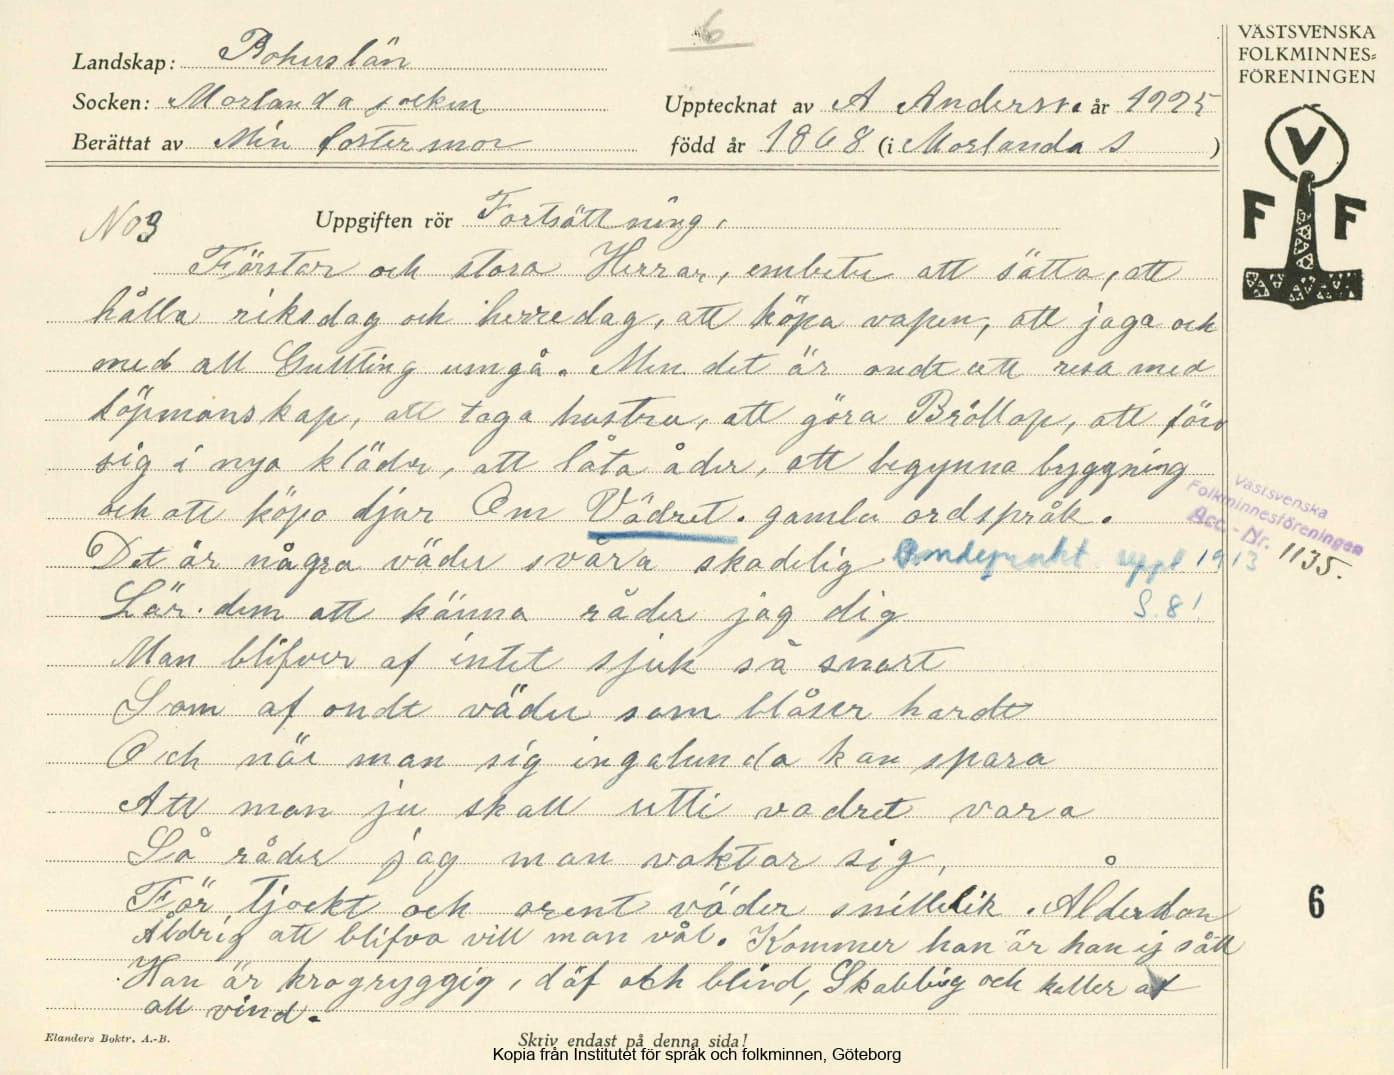 6
VÄSTSVENSKA
FOLKMINNES=
FÖRENINGEN
V
F F
Landskap: Bohuslän
Socken: Morlanda socken
Upptecknat av A Anderson år 1925
Berättat av Min fostermor
född år 1868 (i Morlanda S )
No 3
Uppgiften rör Fortsättning,
Förstar och stora Herrar, embete att sätta, att
hålla riksdag och herredag, att köpa vapen, att jaga och
med all umgå. Men det är ondt att resa med
köpmanskap, att taga hustru, att göra Bröllop, att föra
sig i nya kläder, att låta åder, att begynna byggning
och att köpa djur Om Vädret. gamla ordspråk.
Det är några väder svåra skadelig
Bondeprakt. uppl 1913
S. 8!
Västsvenska
Folkminnesföreningen
Acc.-Nr. 1135.
Lär dem att känna råder jag dig
Man blifver af intet sjuk så snart
Som af ondt väder som blåser hardt
Och när man sig ingalunda kan spara
Att man ju skall utti vadret vara
Så råder jag man vaktar sig,
För Tjockt och orent väder Ålderdon
Åldrig att blifva vill man väl. Kommer han är han ej säll
Han är krogryggig, döf och blind, Skabbig och haller af
all vind.
6
Elanders Boktr. A.-B.
Skriv endast på denna sida!
Kopia från Institutet för språk och folkminnen, Göteborg